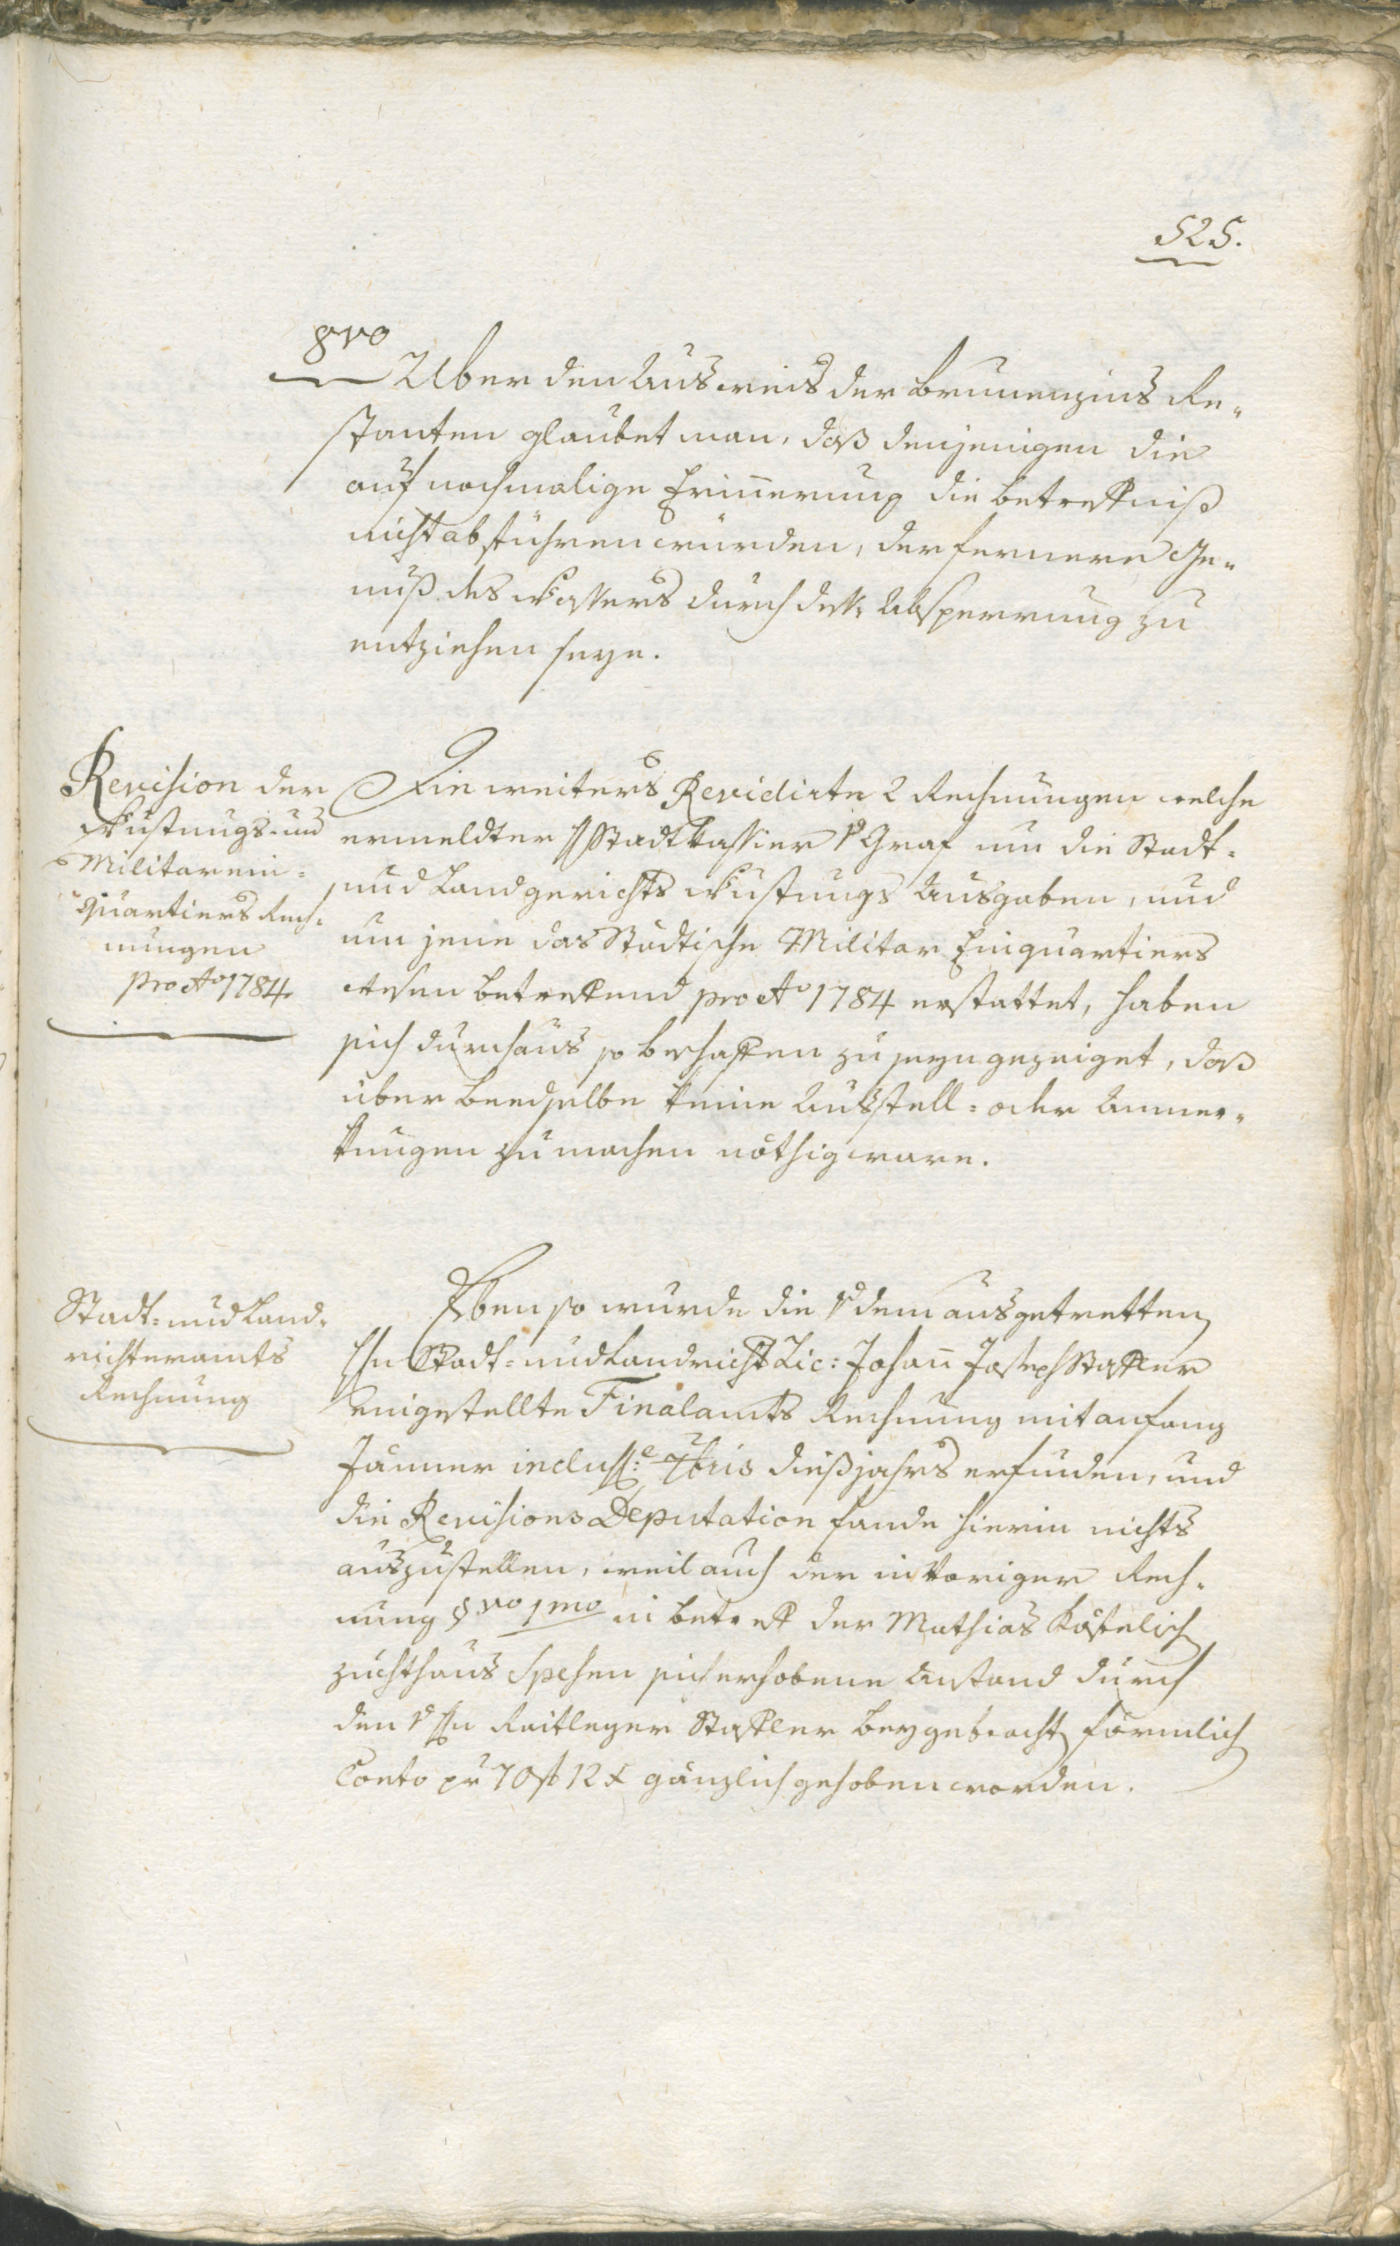 525.
8vo
Uber den Ausweis der Brunenzins Re-
stanten glaubet man, daß denjenigen die
auf nochmalige Erinnerung die betrefniß
nicht abführen wurden, der fernere Ge-
nuß des Wassers durch dess. Absperrung zu
entziehen seye.
Revision der
Wustungs- und
Militarein-
quartiers Rech-
nungen
pro Ao 1784.
Die weiters Revidirte 2 Rechnungen welche
ermeldter H Stadtkassier v Graf um die Stadt-
und Landgerichts Wustungs Ausgaben, und
um jene das Städtische Militar Einquartiers
wesen betreffend pro Ao 1784 erstattet, haben
sich durchaus so beschaffen zu seyn gezeiget, daß
über beedselbe keine Ausstell- oder Anmer-
kungen zu machen nöthig ware.
Stadt- und Land-
richteramts
Rechnung
Eben so wurde die v dem ausgetretten
Hn Stadt- und Landricht Lic: Johann Joseph Stafler
eingestellte Finalamts Rechnung mit anfang
Jänner incluss: 7bris dießjahrs erfunden, und
die Revisions Deputation fande hierin nichts
auszustellen, weil auch der in voriger Rech-
nung 8vo 1mo in betref der Mathias
Zuchthaus Spesen sich erhobene Anstand durch
den v Hn Raitleger Stafler beygebracht förmlich
Conto pr 70 f 12 x gänzlich gehoben worden.